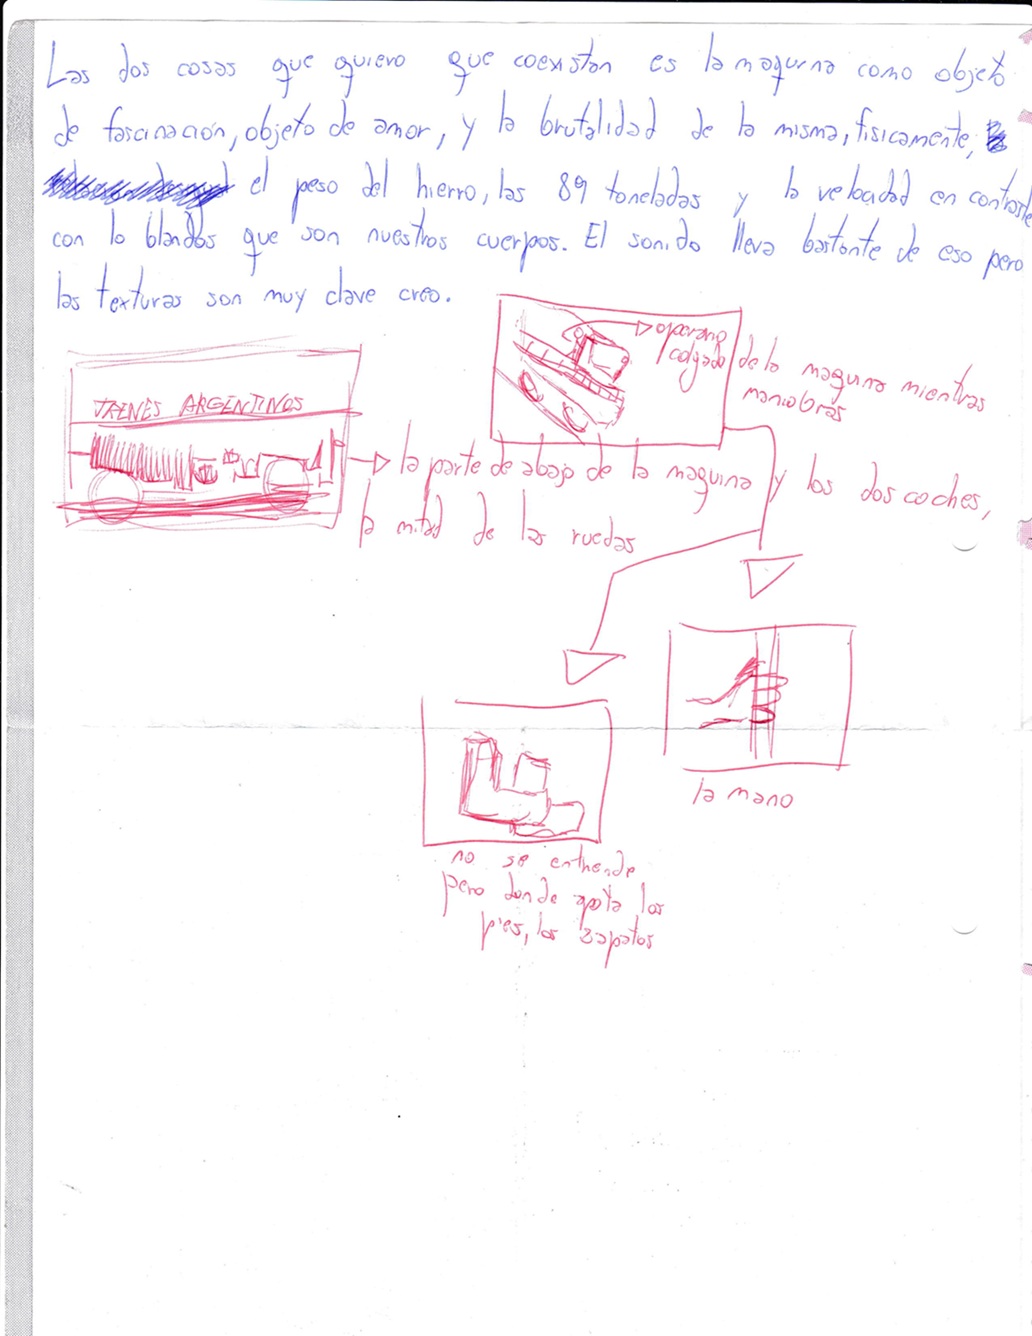 Las dos cosas que quiero que coexistan es la maquina como objeto
de fascinación, objeto de amor, y la brutalidad de la misma, fisicamente,
el peso del hierro, las 89 toneladas y la velocidad en contraste
con lo blandos que son nuestros cuerpos. El sonido lleva bastante de eso pero
las texturas son muy clave creo.
operario
colgado de la maquina mientras
maniobras
TRENES ARGENTINOS
la parte de abajo de la maquina y los dos coches,
la mitad de las ruedas
la mano
no se entiende
pero donde apoya los
pies, los zapatos